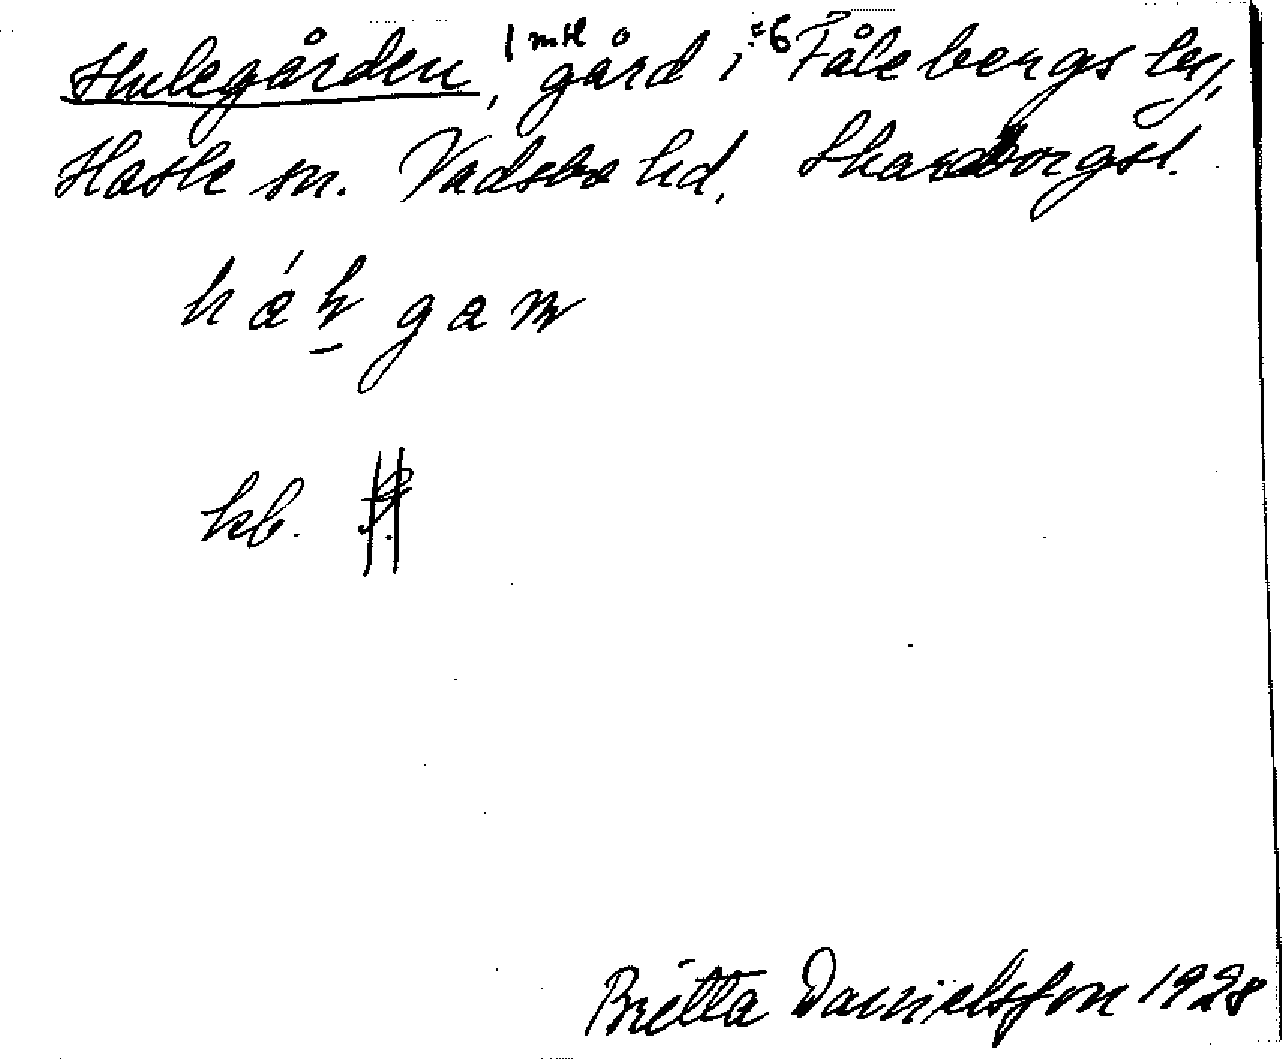 Hulegården, 1 mtl gård i =6 Fålebergs by,
Hasle sn. Vadsbo hd, Skaraborgsl.
kb.
Britta Danielsson 1928